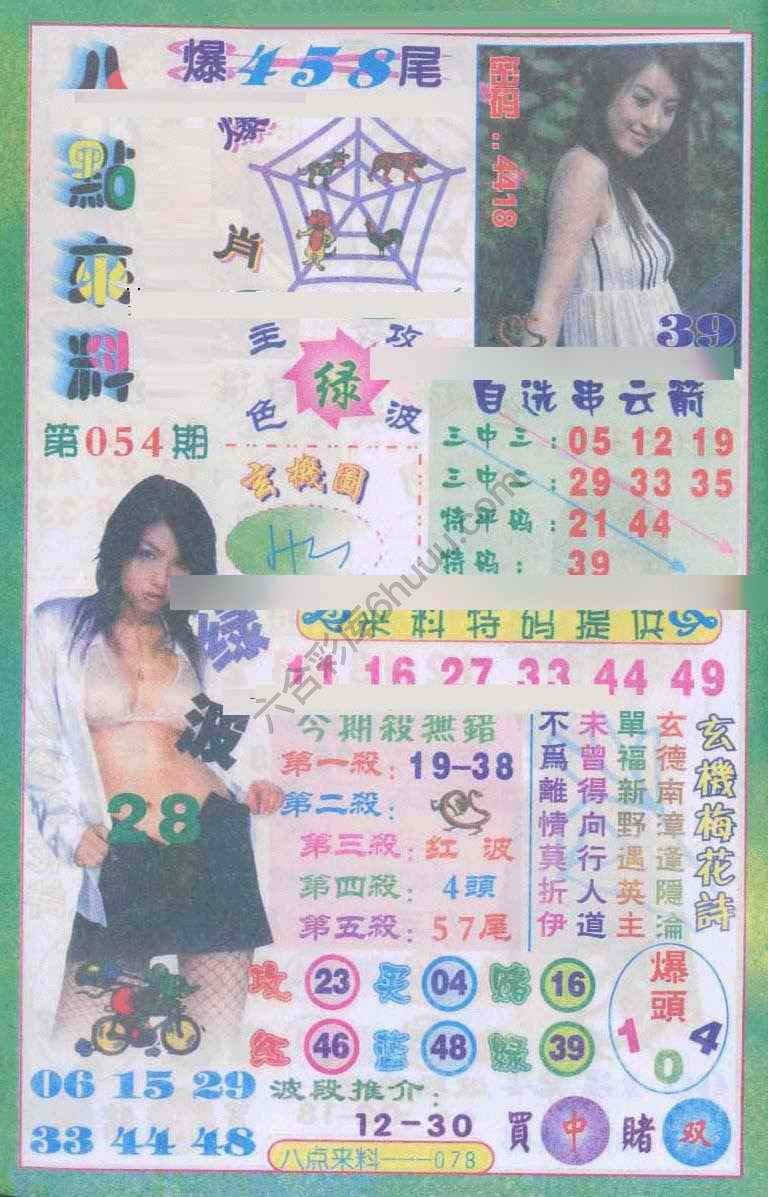 八點來料
第054期
爆458尾
爆肖
密..4418
39
主攻
绿
色波
玄機圖
自选串云箭
三中三：05 12 19
三中二：29 33 35
特平码：21 44
特码：39
来料特码提供
11 16 27 33 44 49
绿波
28
今期殺無錯
第一殺：19-38
第二殺：
第三殺：红波
第四殺：4頭
第五殺：57尾
玄機梅花詩
玄德南漳逢隱淪
單福新野遇英主
未曾得向行人道
不爲離情莫折伊
攻 23 买 04 赌 16
红 46 藍 48 绿 39
爆頭
1 0 4
06 15 29
33 44 48
波段推介：
12-30
買中賭双
八点来料——078
六合彩库6huuu.com